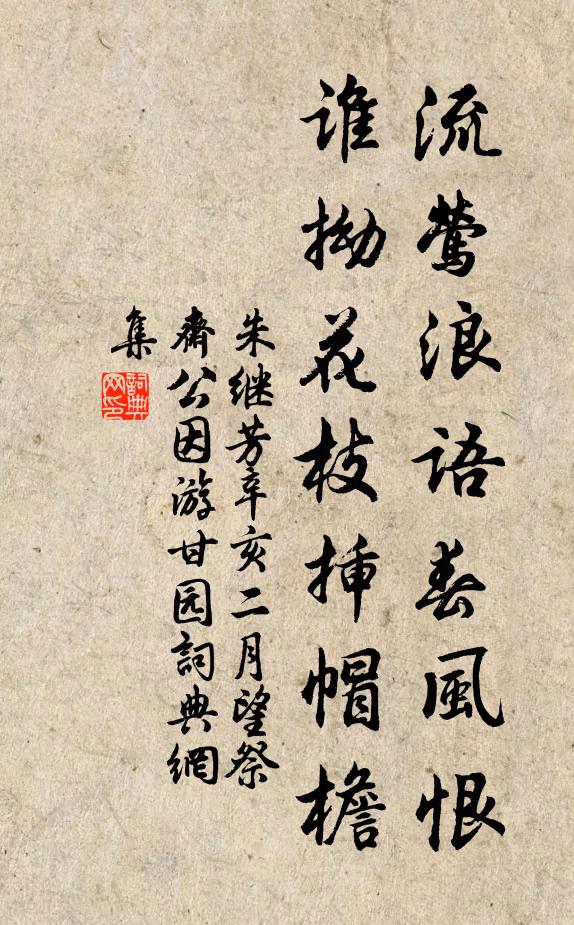 流莺浪語春風恨
誰拗花枝揷帽檐
朱继芳辛亥二月望祭
齋公因游甘园詞典網
集
詞典
网印